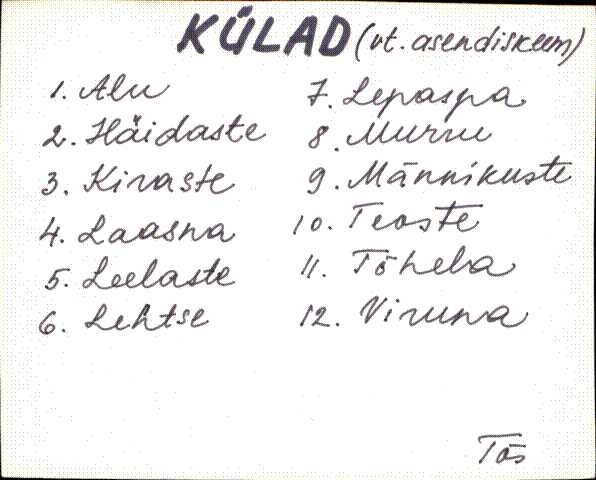 KÜLAD (vt. asendiskeem)
1. Alu
2. Häidaste
3. Kiraste
4. Laasna
5. Leelaste
6. Lehtse
7. Lepaspa
8. Murru
9. Männikuste
10. Teoste
11. Tõhela
12. Viruna
Tõs